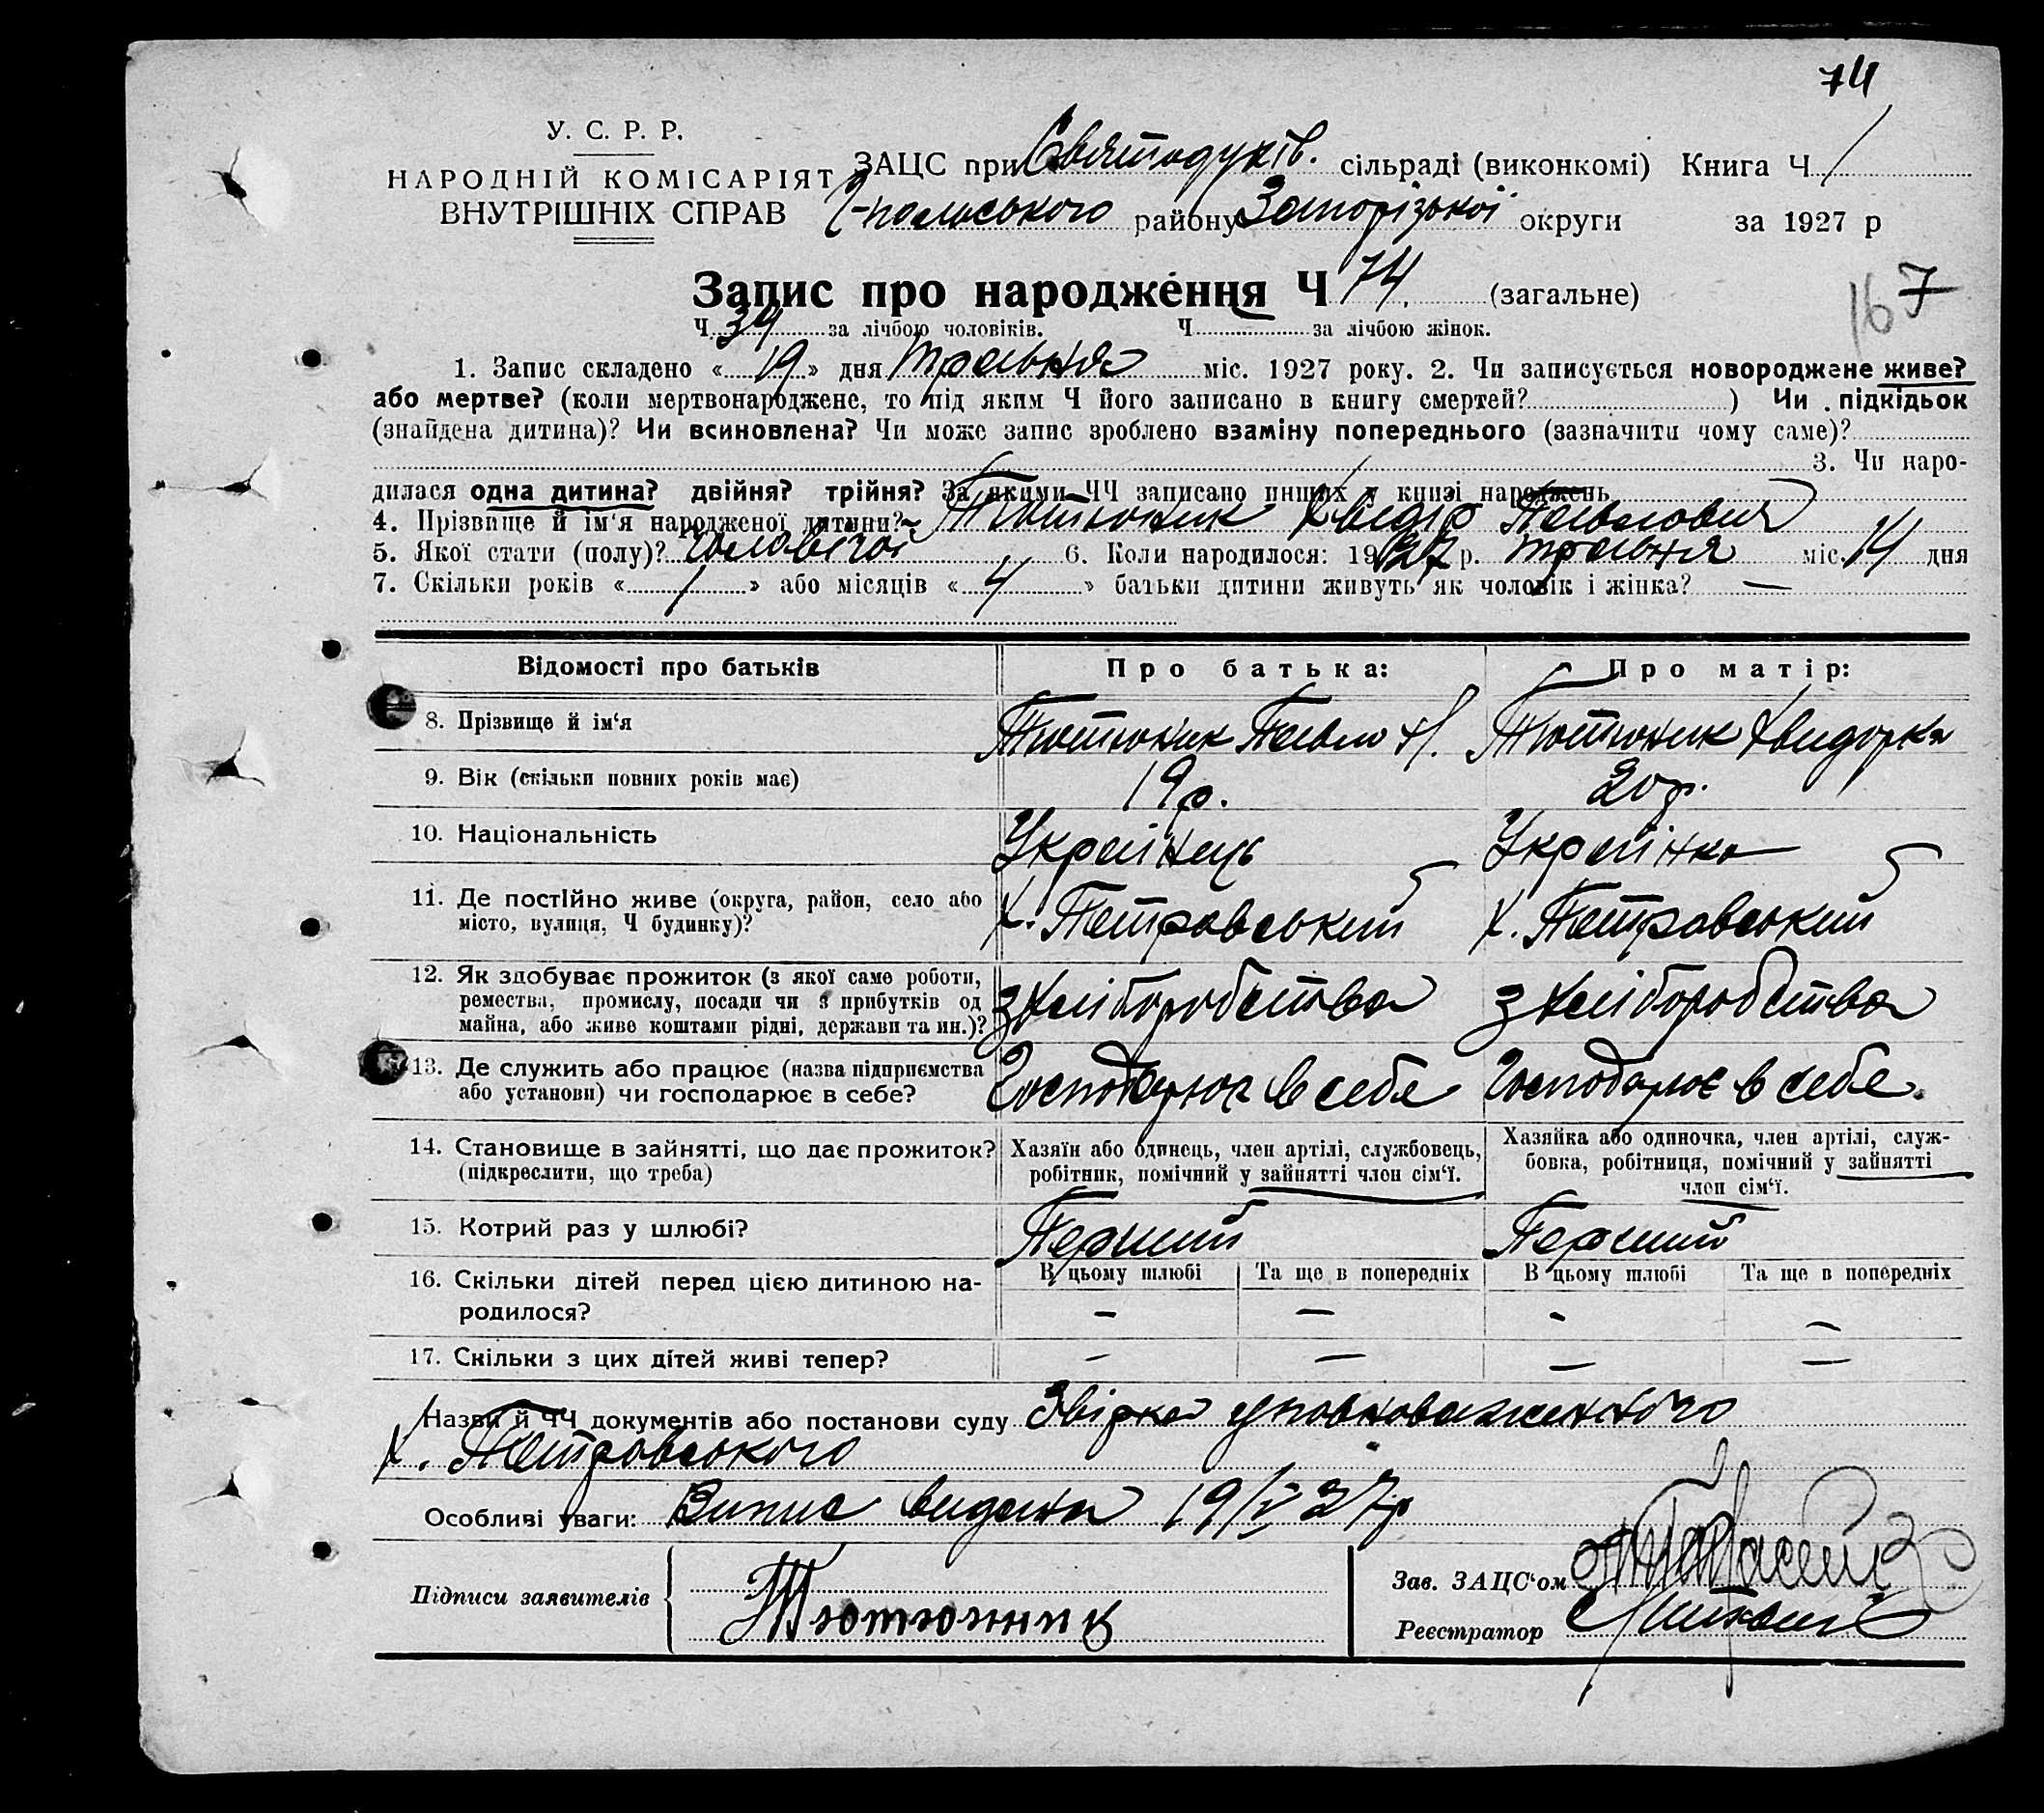 74
У. С. Р. Р.
НАРОДНІЙ КОМІСАРІЯТ
ВНУТРІШНІХ СПРАВ
ЗАЦС при Святодухів. сільраді (виконкомі) Книга Ч 1
Г-польського району Запорізької округи за 1927 р
Запис про народження Ч 74. (загальне)
167
Ч. 39 за лічбою чоловіків. Ч. за лічбою жінок.
1. Запис складено «19» дня травня міс. 1927 року. 2. Чи записується новороджене живе?
або мертве? (коли мертвонароджене, то під яким Ч його записано в книгу смертей? ) Чи підкідьок
(знайдена дитина)? Чи всиновлена? Чи може запис зроблено взаміну попереднього (зазначити чому саме)?
3. Чи наро-
дилася одна дитина? двійня? трійня? За якими ЧЧ записано инших у книзі народжень
4. Прізвище й ім‘я народженої дитини? Тютюник Хведір Павлович
5. Якої стати (полу)? Чоловічої 6. Коли народилося: 1927 р. травня міс. 14 дня
7. Скільки років «1» або місяців «4» батьки дитини живуть як чоловік і жінка? —
Відомості про батьків Про батька: Про матір:
8. Прізвище й ім‘я Тютюник Павло Н. Тютюник Хведорка
9. Вік (скільки повних років має) 19 р. 20 р.
10. Національність Українець Українка
11. Де постійно живе (округа, район, село або
місто, вулиця, Ч будинку)? Х. Петровський Х. Петровський
12. Як здобуває прожиток (з якої саме роботи,
ремества, промислу, посади чи з прибутків од
майна, або живе коштами рідні, держави та ин.)? з хліборобства з хліборобства
13. Де служить або працює (назва підприємства
або установи) чи господарює в себе? Господарює в себе Господарює в себе.
14. Становище в зайнятті, що дає прожиток?
(підкреслити, що треба)
Хазяїн або одинець, член артілі, службовець,
робітник, помічний у зайнятті член сім‘ї.
Хазяйка або одиночка, член артілі, служ-
бовка, робітниця, помічний у зайнятті
член сім‘ї.
15. Котрий раз у шлюбі? Перший Перший
16. Скільки дітей перед цією дитиною на-
родилося?
В цьому шлюбі Та ще в попередніх В цьому шлюбі Та ще в попередніх
— — — —
17. Скільки з цих дітей живі тепер? — — — —
Назви й ЧЧ документів або постанови суду Звірка уповноваженного
х. Петровського
Особливі уваги: Випис видана 19/V 27 р
Підписи заявителів Тютюнник
Зав. ЗАЦС‘ом
Реєстратор